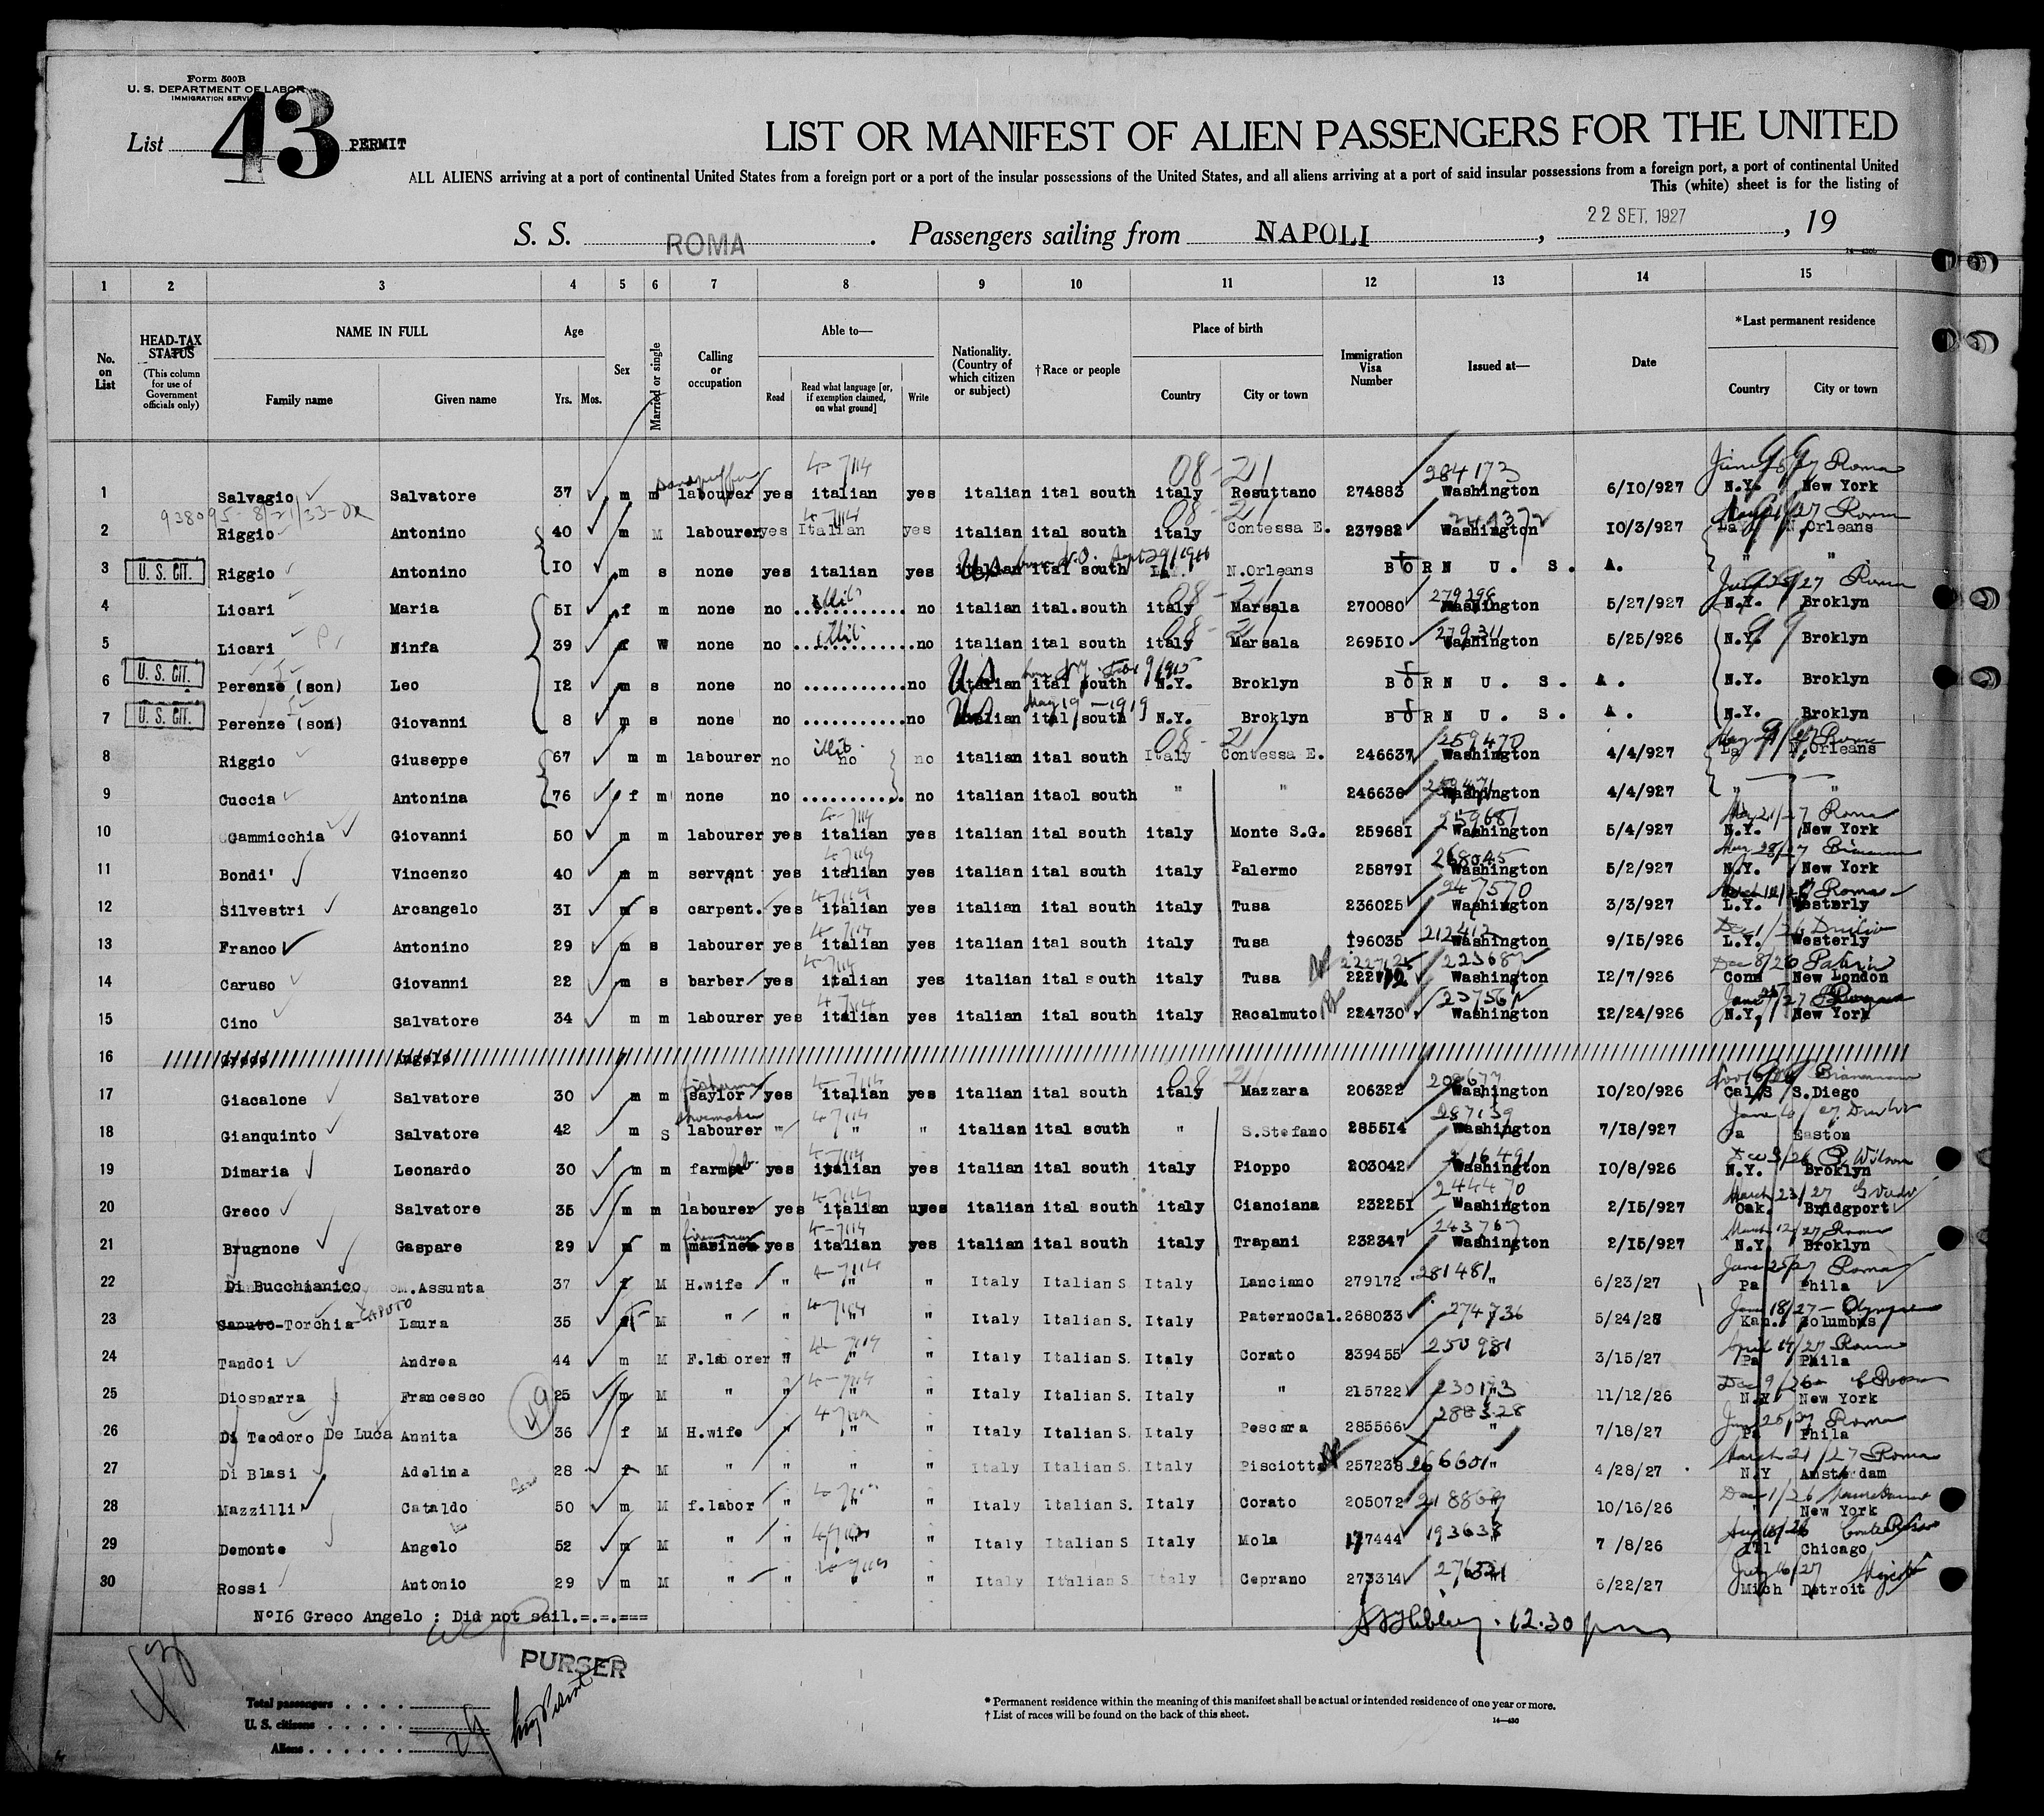 Form 500B
U. S. DEPARTMENT OF LABOR
IMMIGRATION SERVICE
List 43 PERMIT
LIST OR MANIFEST OF ALIEN PASSENGERS FOR THE UNITED
ALL ALIENS arriving at a port of continental United States from a foreign port or a port of the insular possessions of the United States, and all aliens arriving at a port of said insular possessions from a foreign port, a port of continental United
This (white) sheet is for the listing of
S. S. ROMA. Passengers sailing from NAPOLI, 22 SET. 1927, 19
14—430b
1 2 3 4 5 6 7 8 9 10 11 12 13 14 15
No. on List HEAD-TAX STATUS (This column for use of Government officials only) NAME IN FULL Family name Given name Age Yrs. Mos. Sex Married or single Calling or occupation Able to— Read Read what language [or, if exemption claimed, on what ground] Write Nationality. (Country of which citizen or subject) †Race or people Place of birth Country City or town Immigration Visa Number Issued at— Date *Last permanent residence Country City or town
4-7114 08-211 284173 Roma
1 Salvagio Salvatore 37 m m labourer yes italian yes italian ital south italy Resuttano 274883 Washington 6/10/927 N.Y. New York
938095-8/21/33- 4-7114 08-211 Roma
2 Riggio Antonino 40 m M labourer yes Italian yes italian ital south italy Contessa E. 237982 Washington 10/3/927 La N.Orleans
3 U. S. CIT. Riggio Antonino 10 m s none yes italian yes italian ital south N.Orleans BORN U. S. A. " "
08-211 279298 Roma
4 Licari Maria 51 f m none no ............ no italian ital.south italy Marsala 270080 Washington 5/27/927 N.Y. Broklyn
08-211 279311
5 Licari Ninfa 39 f W none no ............ no italian ital south italy Marsala 269510 Washington 5/25/926 N.Y. Broklyn
6 U. S. CIT. Perenze (son) Leo 12 m s none no ........... no US italian ital south N.Y. Broklyn BORN U. S. A. N.Y. Broklyn
May 19-1919
7 U. S. CIT. Perenze (son) Giovanni 8 m s none no ........... no US italian ital south N.Y. Broklyn BORN U. S. A. N.Y. Broklyn
illit 08-211 259470 Roma
8 Riggio Giuseppe 67 m m labourer no no no italian ital south Italy Contessa E. 246637 Washington 4/4/927 La N.Orleans
259471
9 Cuccia Antonina 76 f m none no ............ no italian itaol south " " 246636 Washington 4/4/927 " "
4-7114 259681 21/27 Roma
10 Gammicchia Giovanni 50 m m labourer yes italian yes italian ital south italy Monte S.G. 259681 Washington 5/4/927 N.Y. New York
4-7114 268045
11 Bondi' Vincenzo 40 m m servant yes italian yes italian ital south italy Palermo 258791 Washington 5/2/927 N.Y. New York
4-7114 247570 Roma
12 Silvestri Arcangelo 31 m s carpent. yes italian yes italian ital south italy Tusa 236025 Washington 3/3/927 L.Y. Westerly
4-7114 212412 Dec 1/26 Duilio
13 Franco Antonino 29 m s labourer yes italian yes italian ital south italy Tusa 196035 Washington 9/15/926 L.Y. Westerly
4-7114 222725 223682 Dec 8/26 Patria
14 Caruso Giovanni 22 m s barber yes italian yes italian ital south italy Tusa 222712 Washington 12/7/926 Conn New London
4-7114
15 Cino Salvatore 34 m m labourer yes italian yes italian ital south italy Racalmuto 224730 Washington 12/24/926 N.Y. New York
16 Greco Angelo
fisherman 4-7114 08 21
17 Giacalone Salvatore 30 m m saylor yes italian yes italian ital south italy Mazzara 206322 Washington 10/20/926 Cal S S.Diego
shoemaker 4-7114 287139
18 Gianquinto Salvatore 42 m S labourer " " " italian ital south " S.Stefano 285514 Washington 7/18/927 Pa Easton
4-7114 Wilson
19 Dimaria Leonardo 30 m m farmer yes italian yes italian ital south italy Pioppo 203042 Washington 10/8/926 N.Y. Broklyn
4-7114 244470 March 23/27
20 Greco Salvatore 35 m m labourer yes italian yes italian ital south italy Cianciana 232251 Washington 2/15/927 Cak. Bridgport
fireman 4-7114 243767 March 12/27 Roma
21 Brugnone Gaspare 29 m m mariner yes italian yes italian ital south italy Trapani 232347 Washington 2/15/927 N.Y. Broklyn
4-7114 Roma
22 Di Bucchianico M.Assunta 37 f M H.wife " " " Italy Italian S. Italy Lanciano 279172 281481 " 6/23/27 Pa Phila
CAPUTO 4-7114 Jan 18/27 - Olympic
23 Caputo-Torchia Laura 35 F M " " " " Italy Italian S. Italy PaternoCal. 268033 274736 5/24/28 Kan. Columbus
4-7114 Roma
24 Tandoi Andrea 44 m M F.laborer " " " Italy Italian S. Italy Corato 239455 250981 3/15/27 Pa Phila
4-7114 Dec 9/26
25 Diosparra Francesco 25 m M " " " " Italy Italian S. Italy " 215722 2301 3 " 11/12/26 N.Y New York
49 288328 Roma
26 Di Teodoro De Luca Annita 36 f M H.wife " " " Italy Italian S. Italy Pescara 285566 " 7/18/27 Pa Phila
March 21/27 Roma
27 Di Blasi Adelina 28 f M " " " " Italy Italian S. Italy Pisciotta 257238 266601 " 4/28/27 N.Y Amsterdam
Dec 1/26
28 Mazzilli Cataldo 50 m M f.labor " " " Italy Italian S. Italy Corato 205072 10/16/26 " New York
29 Demonte Angelo 52 m M " " " " Italy Italian S Italy Mola 177444 7/8/26 Ill Chicago
30 Rossi Antonio 29 m M " " " " Italy Italian S Italy Ceprano 273314 6/22/27 Mich Detroit
N°16 Greco Angelo : Did not sail.=.=.===
12.30 pm
43
PURSER
Total passengers . . . .
U. S. citizens . . . . .
Aliens . . . . . . 29
* Permanent residence within the meaning of this manifest shall be actual or intended residence of one year or more.
† List of races will be found on the back of this sheet.
14—430